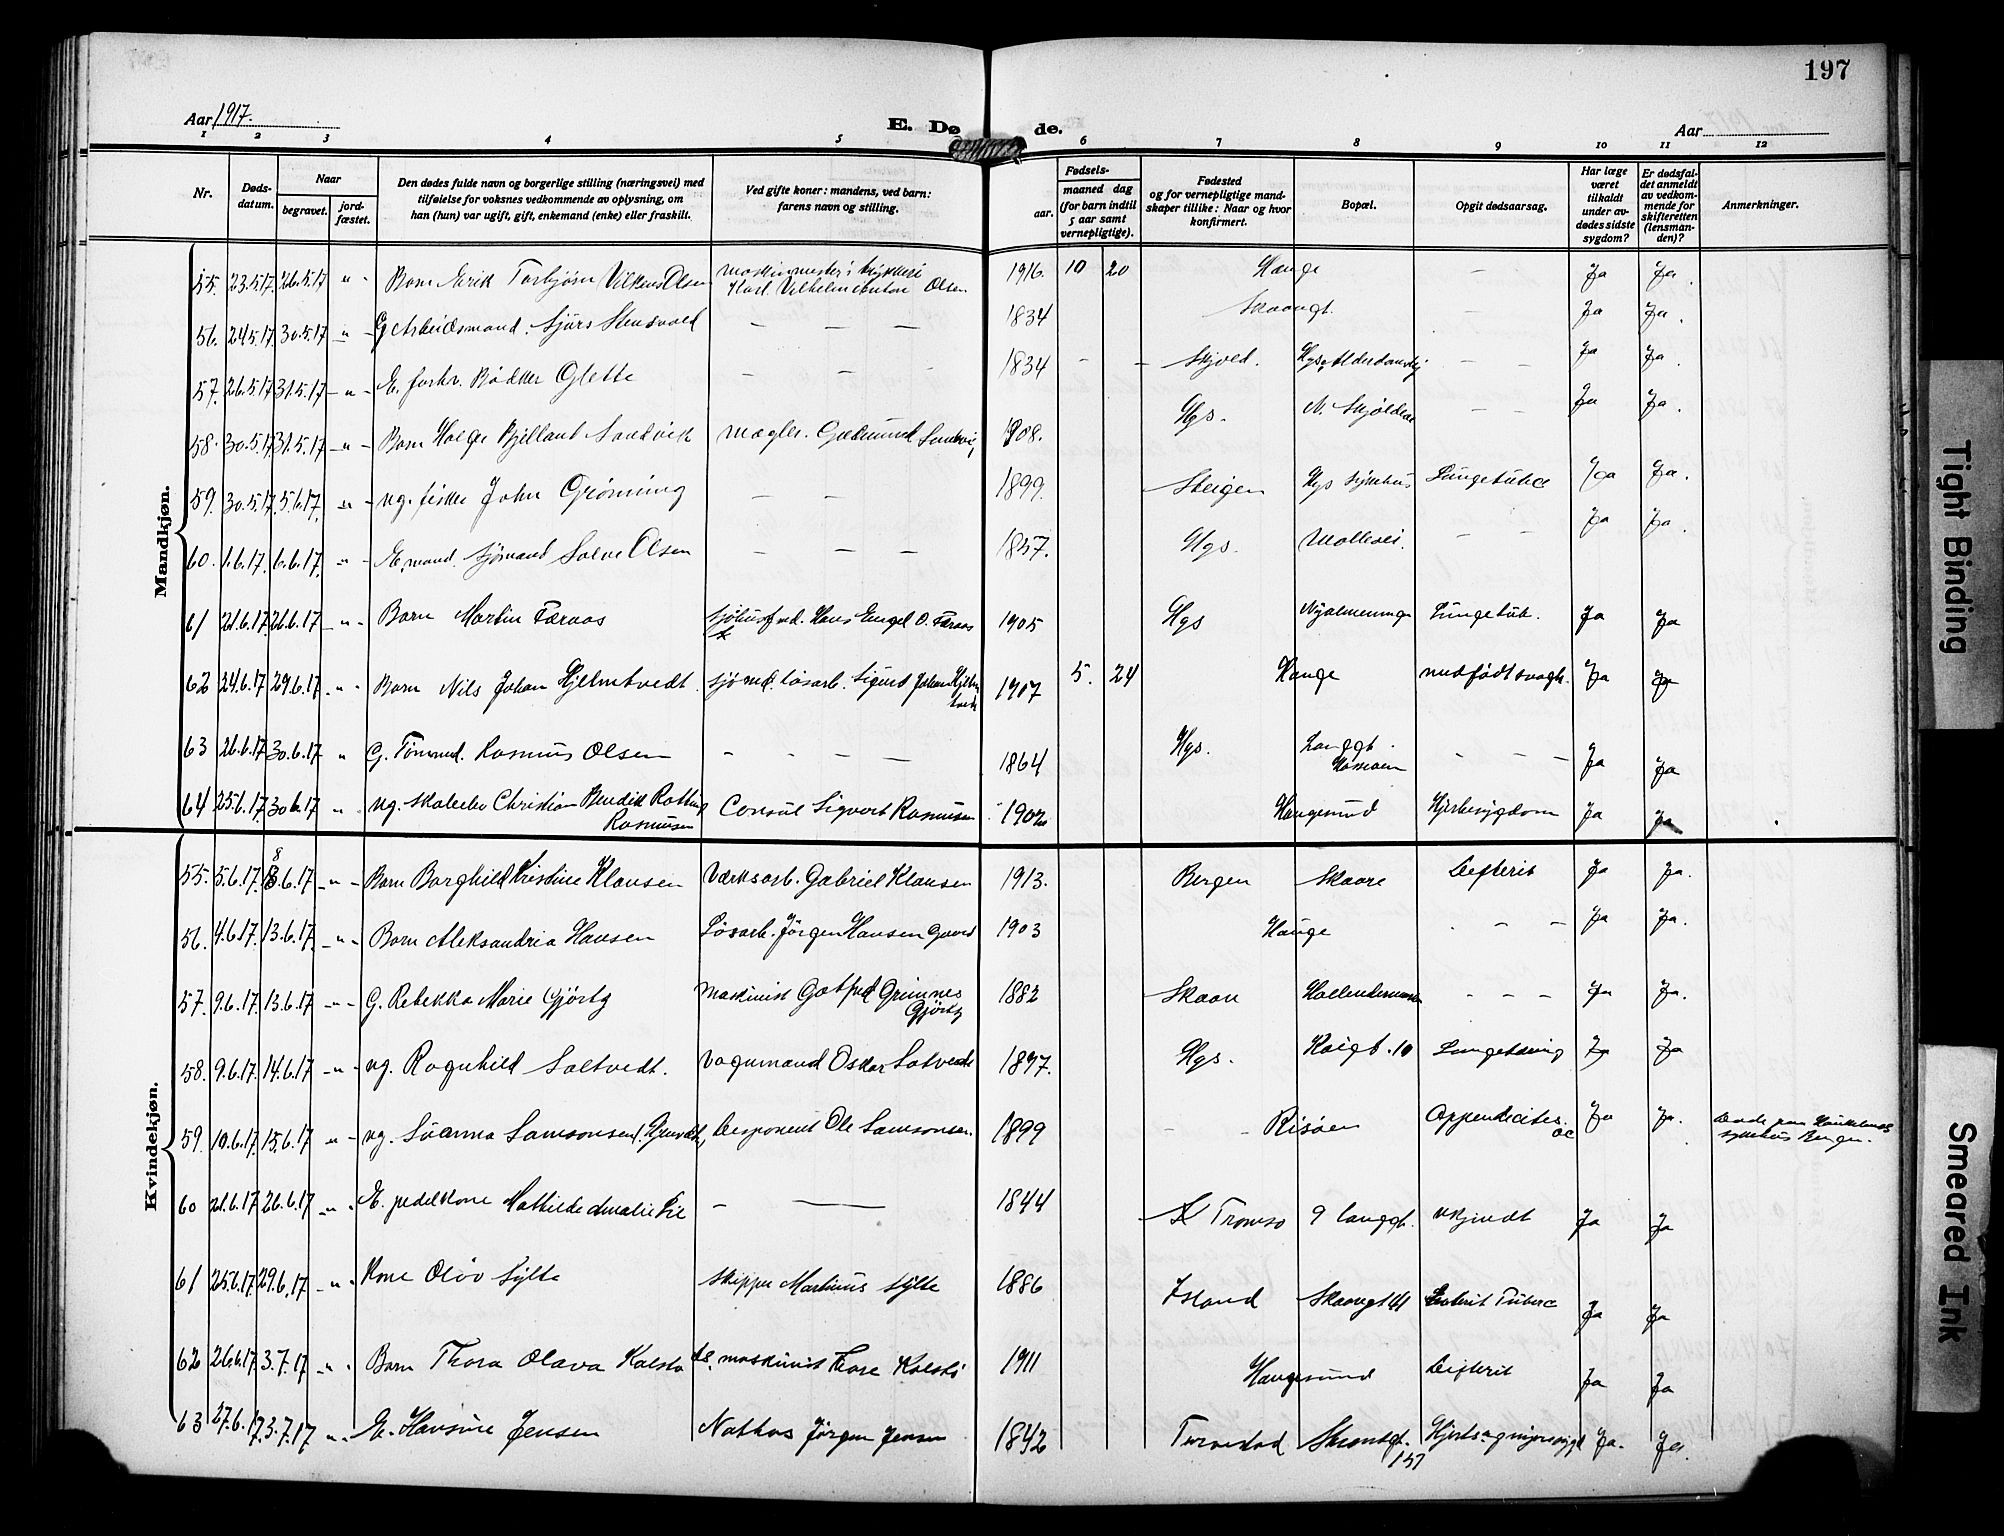 197
Aar 1917.
E. Døde.
Aar
1 2 3 4 5 6 7 8 9 10 11 12
Nr.
Døds-datum.
Naar
begravet.
jord-fæstet.
Den dødes fulde navn og borgerlige stilling (næringsvei) med tilføielse for voksnes vedkommende av oplysning, om han (hun) var ugift, gift, enkemand (enke) eller fraskilt.
Ved gifte koner: mandens, ved barn: farens navn og stilling.
Fødsels-
aar.
maaned dag (for barn indtil 5 aar samt vernepligtige).
Fødested og for vernepligtige mandskaper tillike: Naar og hvor konfirmert.
Bopæl.
Opgit dødsaarsag.
Har læge været tilkaldt under avdødes sidste sygdom?
Er dødsfaldet anmeldt av vedkommende for skifteretten (lensmanden)?
Anmerkninger.
Mandkjøn.
55. 23.5.17. 26.5.17 " Barn Erik Torbjørn Vilkens Olsen Maskinmester i Karl Vilhelm Anton Olsen 1916. 10 20 Hauge — Ja Ja.
56. 24.5.17 30.5.17 " G Arbeidsmand. Sjurs Stensvold — — — 1834 Skaaregt. — Ja Ja.
57. 26.5.17 31.5.17 " E. forhv. Bødker Glette — — - 1834 - - Skjold. — Ja Ja.
58. 30.5.17. 31.5.17 " Barn Helge Kjelland Sandvik Mægler. Gudmund Sandvik 1908. Hgs. N. Skjoldav — — Ja Ja.
59. 30.5.17. 5.6.17. " ug. fisker John Grønning — — 1899. Steigen Hgs Sykehus Lungetuberc Ja Ja.
60. 1.6.17. 6.6.17. " E.mand. Sjømand Salve Olsen — — — 1857. Hgs. Møllevei. — — Ja Ja.
61 21.6.17 26.6.17 " Barn Martin Færaas Hans Engel O. Færaas 1905 Hgs Nyalmenninge Lungetub. Ja Ja
62 24.6.17 29.6.17 " Barn Nils Johan Hjelmtvedt. sjømd. løsarb. Sigurd Johan Hjelmtvedt 1917 5. 24 Hauge medfødt svagh. Ja Ja
63 26.6.17 30.6.17 " G. Tømmd. Rasmus Olsen — — — 1864 Hgs. Langgt. — — — Ja Ja
64 25.6.17 30.6.17 " ug. skoleelev Christian Bendik Rasmussen Consul Sigvart Rasmussen 1902 Haugesund Hjertesygdom Ja Ja
Kvindekjøn.
55. 5.6.17. 8.6.17 " Barn Borghild Kristine Klausen Værksarb. Gabriel Klausen 1913. Bergen Skaare Difterit Ja Ja.
56. 4.6.17. 13.6.17. " Barn Aleksandria Hansen Løsarb. Jørgen Hansen 1903 Hauge - - - Ja Ja.
57. 9.6.17. 13.6.17 " G. Rebekka Marie Gjørtz Maskinist Gotfred Grimnes Gjørtz 1882 Skaare - - - Ja Ja.
58. 9.6.17. 14.6.17 " ug. Ragnhild Saltvedt. Vognmand Oskar Saltvedt 1897. Hgs. Kaigt. 10 Ja Ja
59. 10.6.17. 15.6.17 " ug. Susanna Samsonsen Disponent Ole Samsonsen. 1899 - - Risøen Appendicites. Ja Ja. Døde paa Haukelands sykehus Bergen.
60 21.6.17 26.6.17 " E. pedelkone Mathilde Amalie — — 1844 Tromsø 9 Langgt. ukjendt Ja Ja
61 25.6.17 29.6.17 " Kone Oløv Sylte skipper Martinius Sylte 1886 Island Skaaregt 41 Tuberc Ja Ja
62 26.6.17 3.7.17 " Barn Thora Olava Kalstø ds. maskinist Thore Kalstø 1911 Haugesund Difterit Ja Ja
63 27.6.17. 3.7.17 " E. Hansine Jensen Jørgen Jensen 1842 Torvestad Strandgt. 157 Ja. Ja.
Tight Binding
Smeared Ink